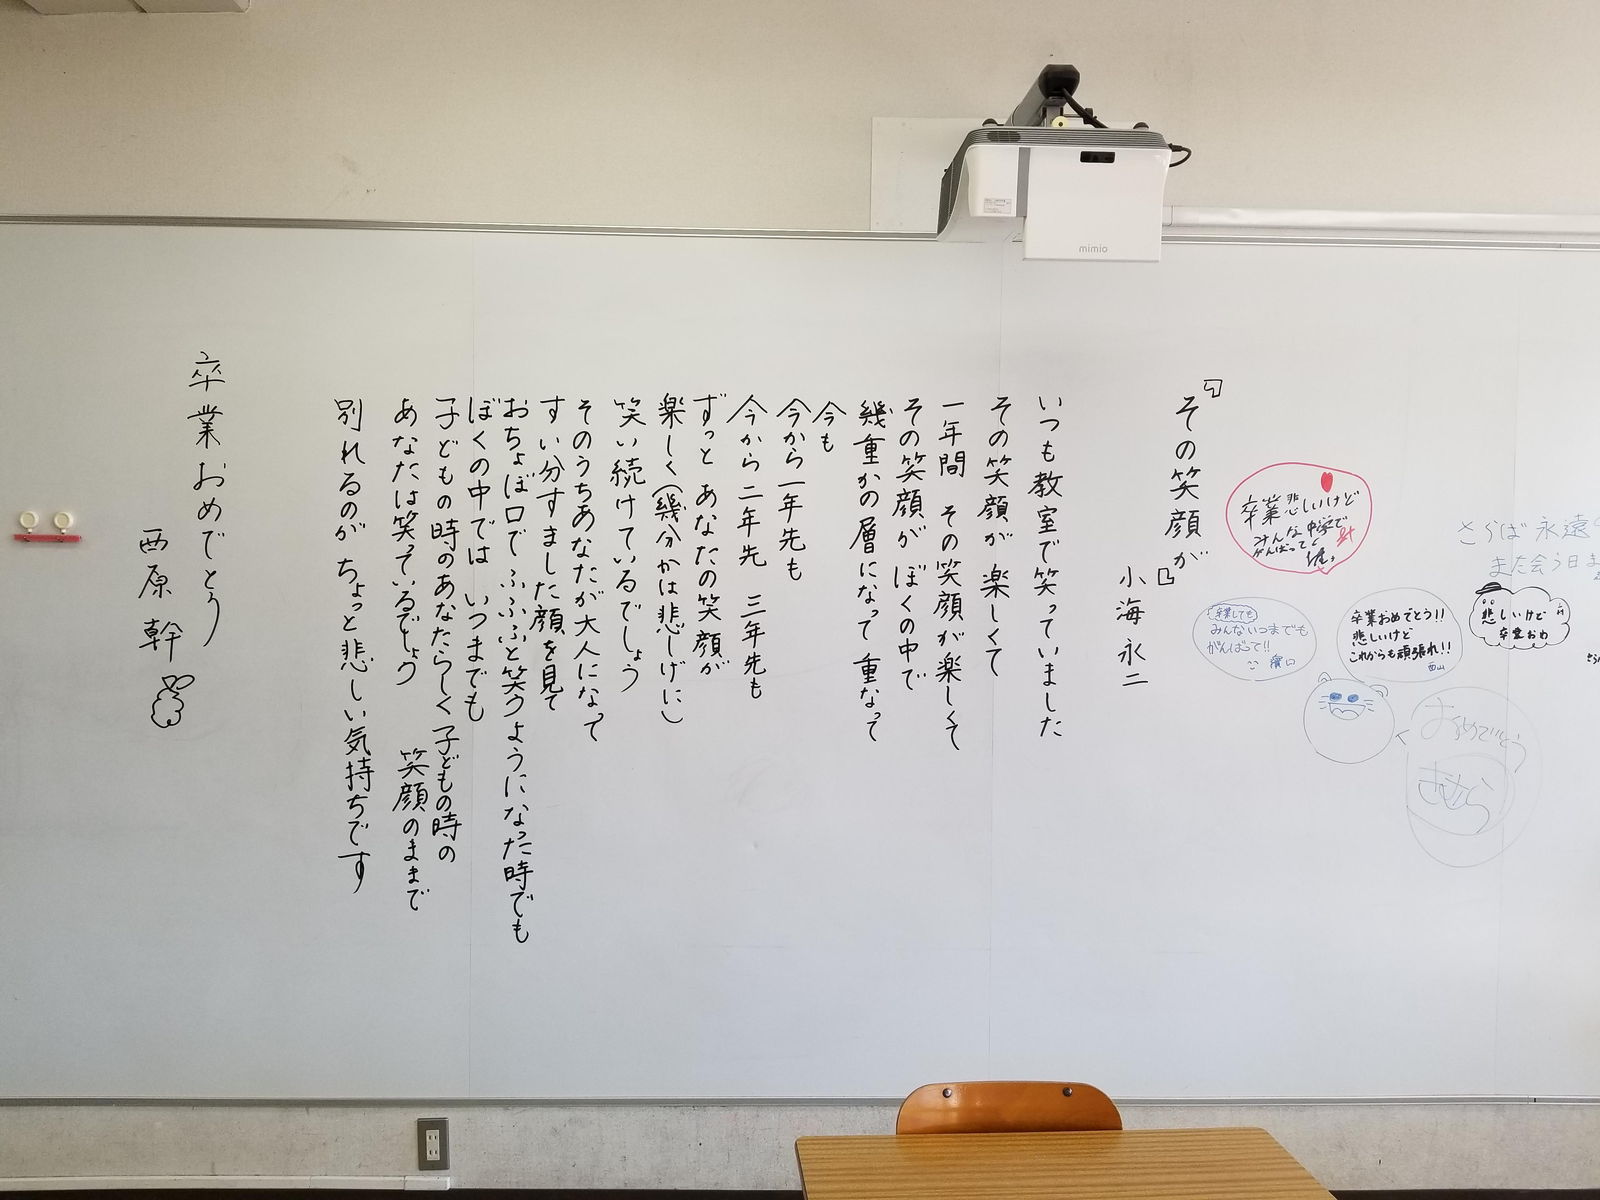 『その笑顔が』
小海永二
いつも教室で笑っていました
その笑顔が 楽しくて
一年間 その笑顔が楽しくて
その笑顔が ぼくの中で
幾重かの層になって重なって
今も
今から一年先も
今から二年先 三年先も
ずっと あなたの笑顔が
楽しく(幾分かは悲しげに)
笑い続けているでしょう
そのうちあなたが大人になって
すい分すました顔を見て
おちょぼ口で ふふふと笑うようになった時でも
ぼくの中では いつまでも
子どもの時のあなたらしく子どもの時の
あなたは笑っているでしょう 笑顔のままで
別れるのが ちょっと悲しい気持ちです
卒業おめでとう
西原 幹
mimio
卒業悲しいけど
みんな中学で
がんばってく
さらば 永遠
また会う日ま
卒業しても
みんないつまでも
がんばって!!
濱口
卒業おめでとう!!
悲しいけど
これからも頑張れ!!
西山
悲しいけど
卒業おめ
おめでとう
きむら